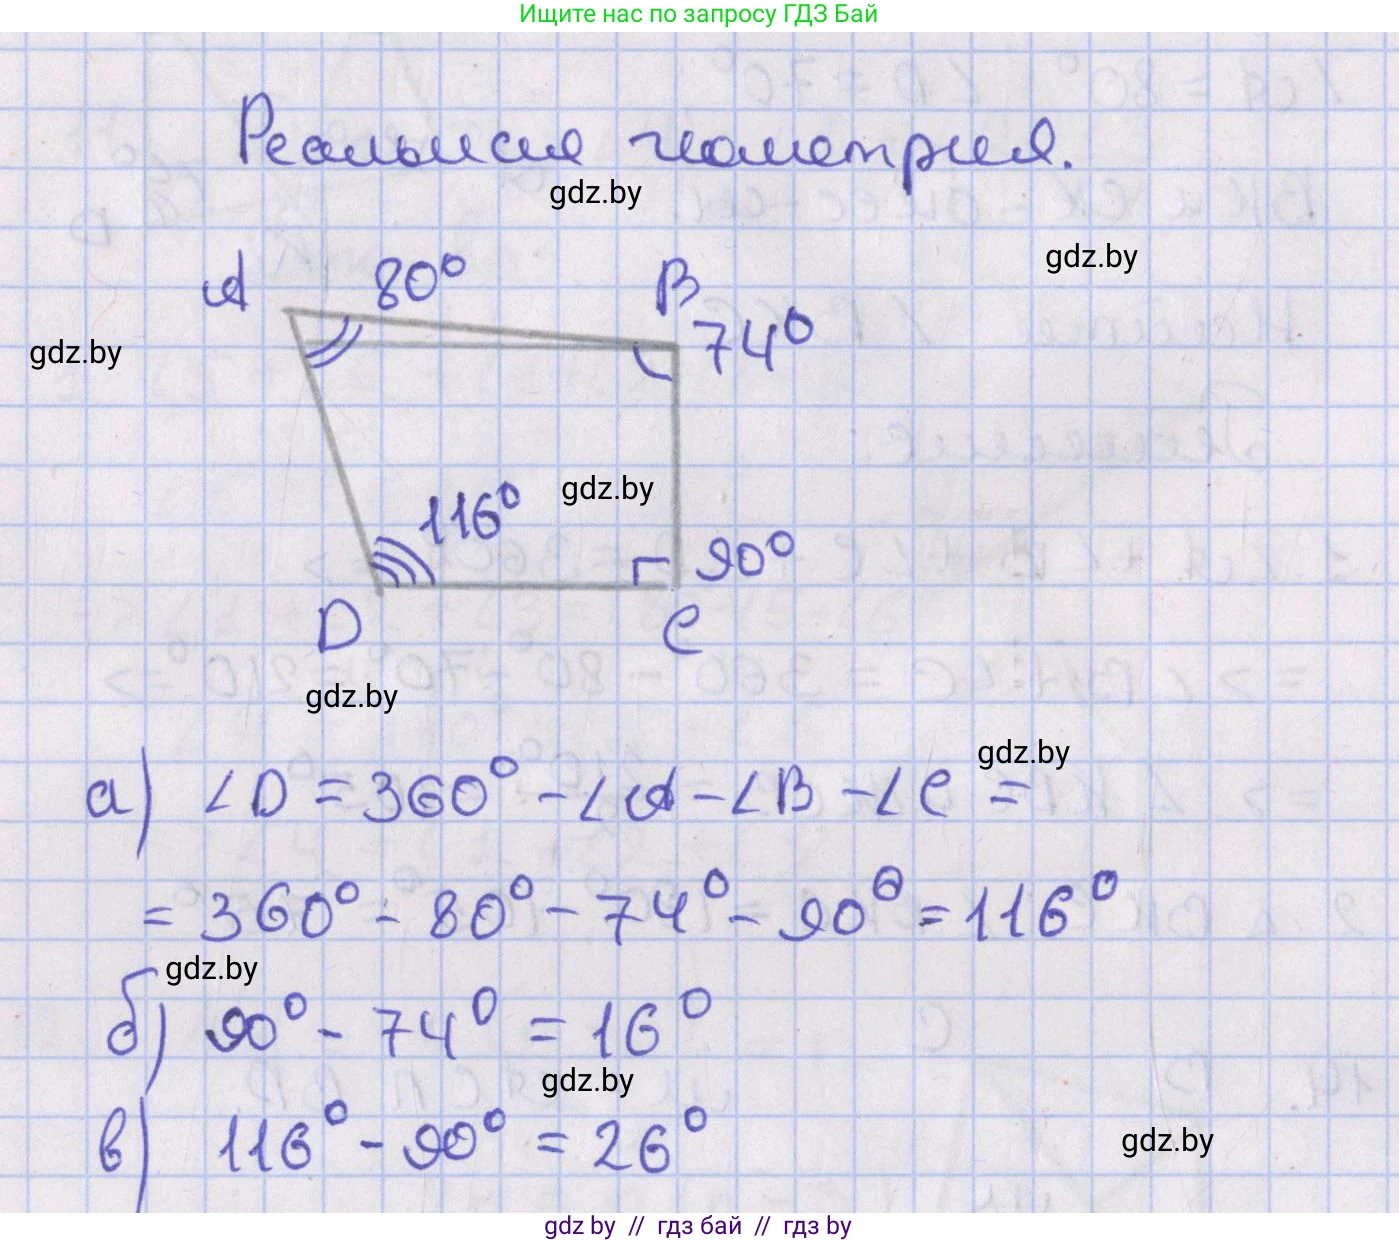 Ищите нас по запросу ГДЗ Бай
Реальная геометрия.
gdz.by
gdz.by
A 80° B
74°
gdz.by
116°
gdz.by
90°
D C
gdz.by
gdz.by
а) ∠D = 360° - ∠A - ∠B - ∠C =
= 360° - 80° - 74° - 90° = 116°
gdz.by
б) 90° - 74° = 16°
gdz.by
в) 116° - 90° = 26°
gdz.by
gdz.by // гдз бай // гдз by